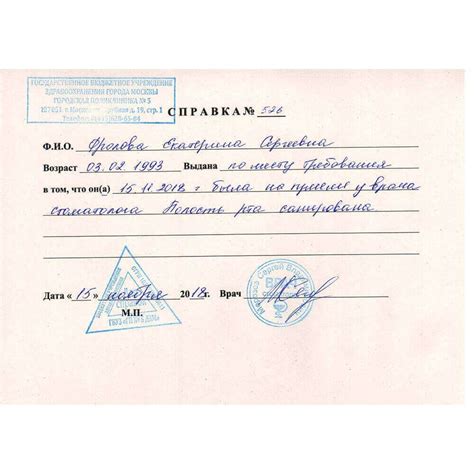 ГОСУДАРСТВЕННОЕ БЮДЖЕТНОЕ УЧРЕЖДЕНИЕ
ЗДРАВООХРАНЕНИЯ ГОРОДА МОСКВЫ
ГОРОДСКАЯ ПОЛИКЛИНИКА № 5
д. 19, стр. 1
СПРАВКА № 526
Ф.И.О. Фролова Екатерина Сергеевна
Возраст 03.02.1993 Выдана по месту требования
в том, что он(а) 15.11.2018 г была на приеме у врача
стоматолога Полость рта санирована
Дата « 15 » ноября 2018г. Врач
М.П.
Сергей
ВРАЧ